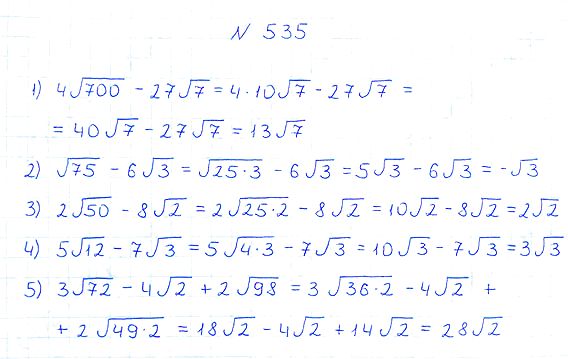 N 535
1) 4√700 - 27√7 = 4·10√7 - 27√7 =
= 40√7 - 27√7 = 13√7
2) √75 - 6√3 = √25·3 - 6√3 = 5√3 - 6√3 = -√3
3) 2√50 - 8√2 = 2√25·2 - 8√2 = 10√2 - 8√2 = 2√2
4) 5√12 - 7√3 = 5√4·3 - 7√3 = 10√3 - 7√3 = 3√3
5) 3√72 - 4√2 + 2√98 = 3√36·2 - 4√2 +
+ 2√49·2 = 18√2 - 4√2 + 14√2 = 28√2